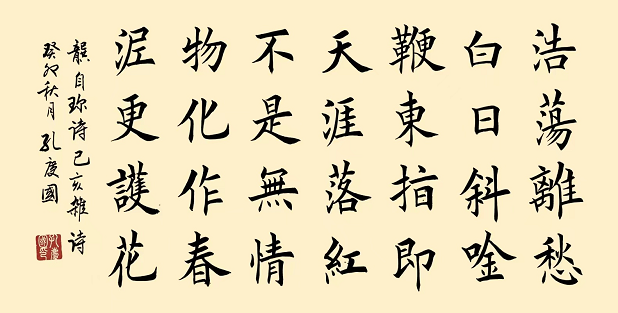 浩蕩離愁
白日斜唫
鞭東指即
天涯落紅
不是無情
物化作春
泥更護花
龔自珍诗己亥雜诗
癸卯秋月孔慶國